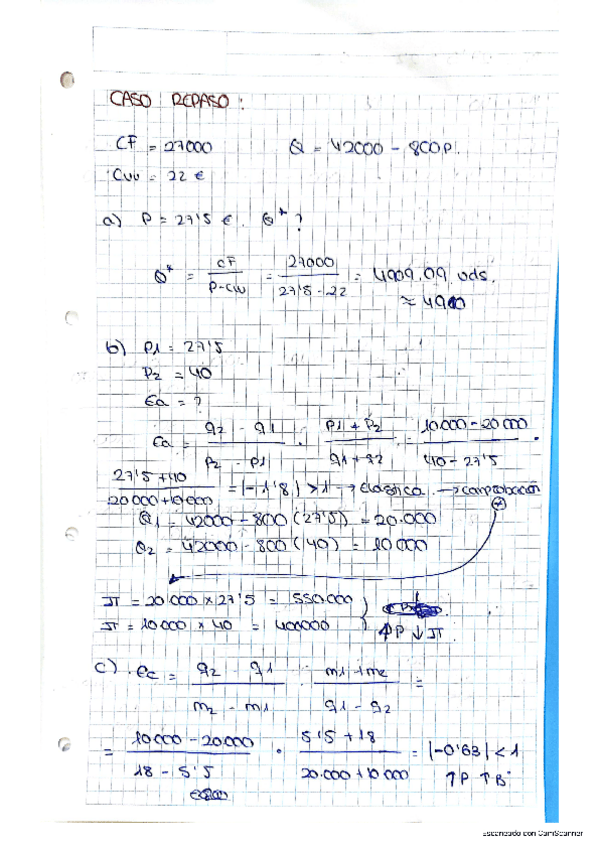 CASO REPASO:
CF = 27000 Q = 42000 - 800P.
Cvu = 22 €
a) P = 27'5 €. Q* ?
Q* = CF / P-Cvu = 27000 / 27'5-22 = 4909.09 uds.
≈ 4910
b) P1 = 27'5
P2 = 40
Ea = ?
Ea = q2 - q1 / P2 - P1 · P1 + P2 / q1 + q2 = 10000 - 20000 / 40 - 27'5 ·
27'5 + 40 / 20000 + 10000 = |-1'8| > 1 → elástica. → comprobación
Q1 = 42000 - 800 (27'5) = 20.000
Q2 = 42000 - 800 (40) = 10000
π = 20.000 x 27'5 = 550.000
π = 10.000 x 40 = 400000 ↑P ↓π.
c) ec = q2 - q1 / m2 - m1 · m1 + m2 / q1 - q2 =
= 10000 - 20.000 / 18 - 5'5 · 5'5 + 18 / 20.000 + 10000 = |-0'63| < 1
↑P ↑B
Escaneado con CamScanner